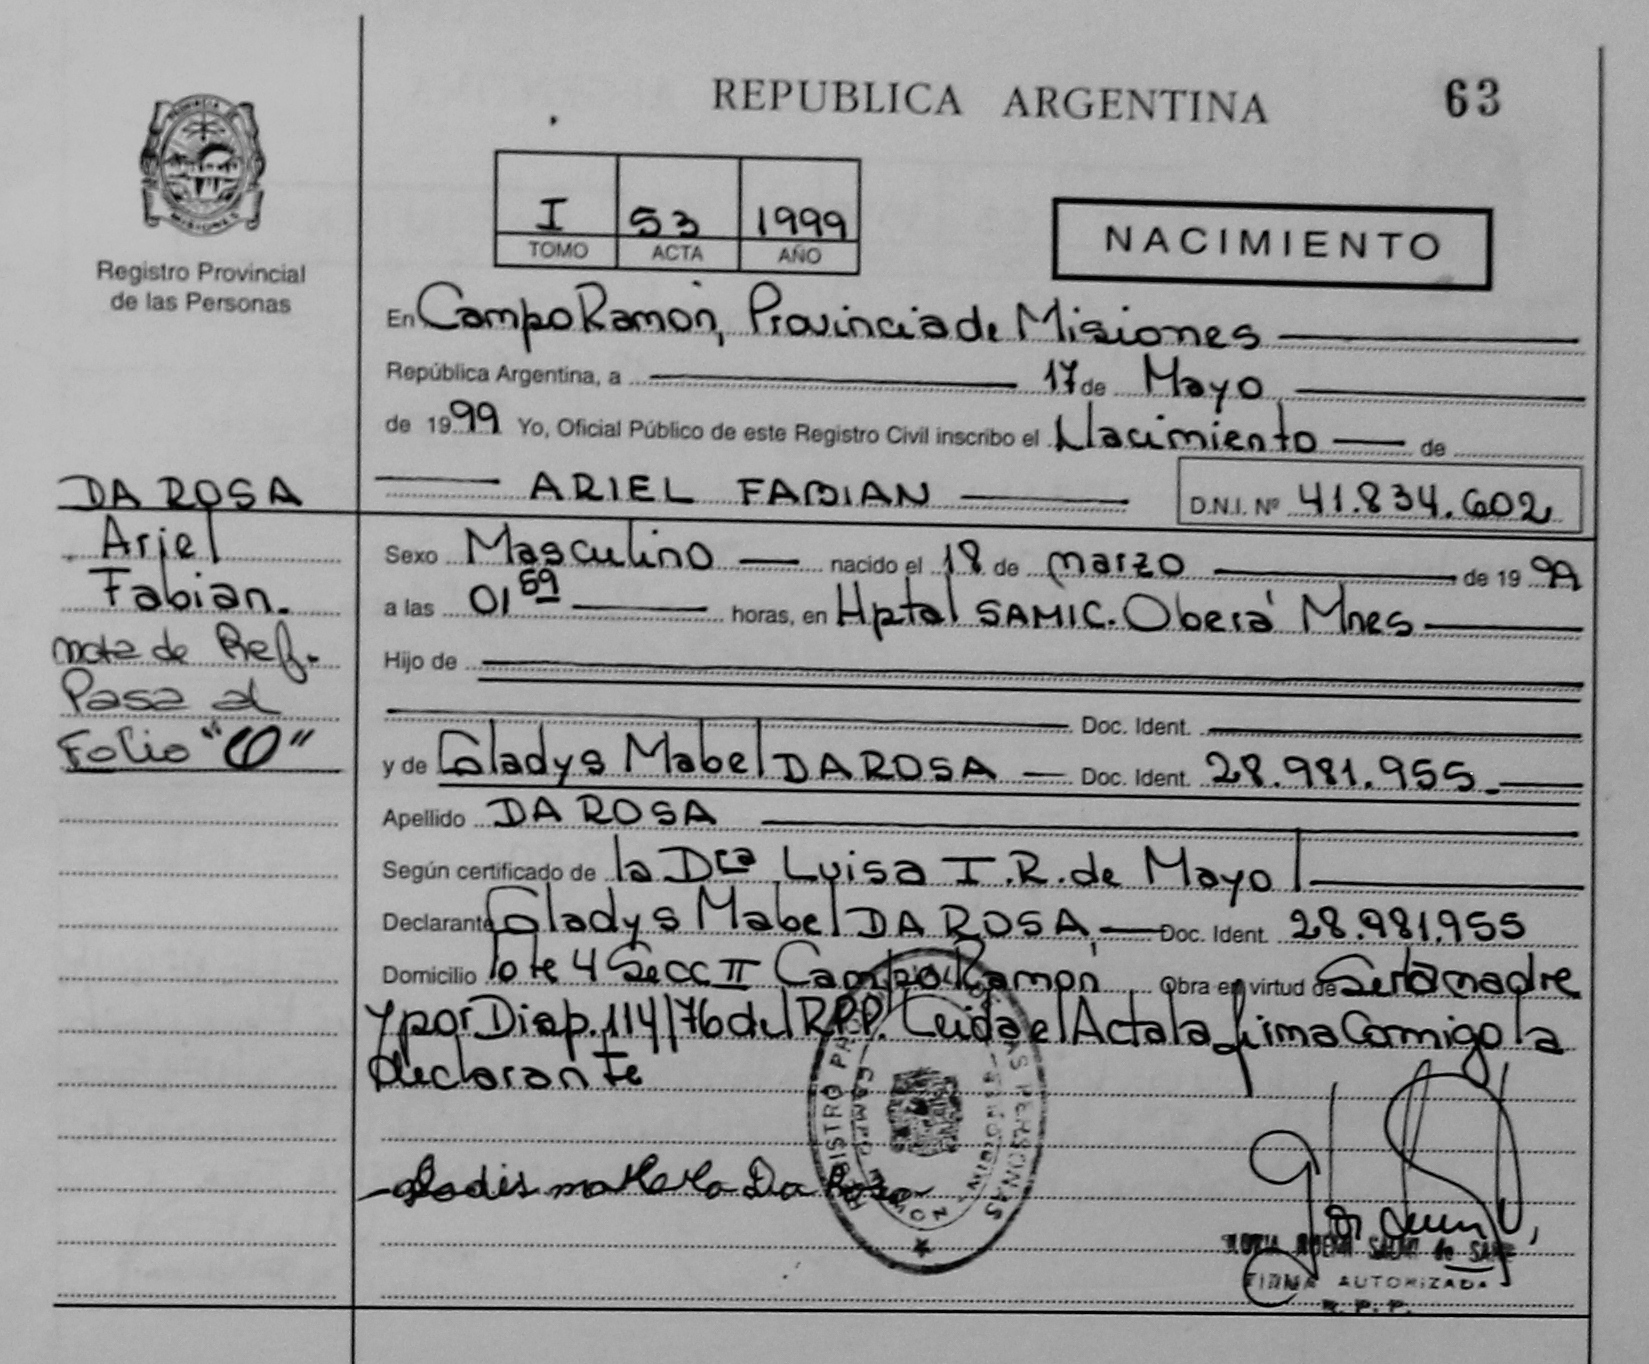 REPUBLICA ARGENTINA 63
PROVINCIA
MISIONES
Registro Provincial
de las Personas
I 53 1999
TOMO ACTA AÑO
NACIMIENTO
En Campo Ramón, Provincia de Misiones
República Argentina, a 17 de Mayo
de 1999 Yo, Oficial Público de este Registro Civil inscribo el Nacimiento de
ARIEL FABIAN D.N.I. Nº 41.834.602
Sexo Masculino nacido el 18 de marzo de 1999
a las 01 59 horas, en Hptal SAMIC. Oberá Mnes
Hijo de
Doc. Ident.
y de Gladys Mabel DA ROSA Doc. Ident. 28.981.955
Apellido DA ROSA
Según certificado de la Dra Luisa I.R. de Mayol
Declarante Gladys Mabel DA ROSA, Doc. Ident. 28.981.955
Domicilio lote 4 Secc II Campo Ramón Obra en virtud de Ser la madre
y por Disp. 114/76 del R.P.P. Leida el Acta la firma Conmigo la
declarante
DA ROSA
Ariel
Fabian.
nota de Ref.
Pasa al
Folio "60"
Da Rosa
REGISTRO PROV. DE LAS PERSONAS
CAMPO RAMON - MISIONES
FIRMA AUTORIZADA
R. P. P.